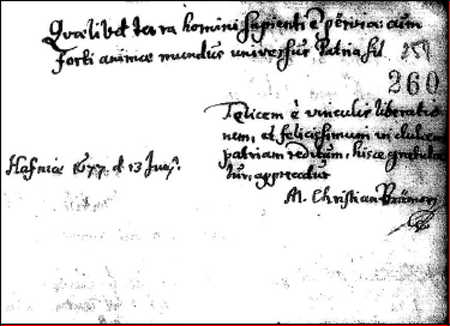 Quælibet terra homini sapienti è pervia: cum
forti animæ mundus universus Patria sit
259
260
Felicem è vinculis liberatio
nem, et felicissimum in dulcem
patriam reditum, hisce gratula
tur, apprecatur
Hafniæ 1677 d 13 Junÿ.
M. Christian